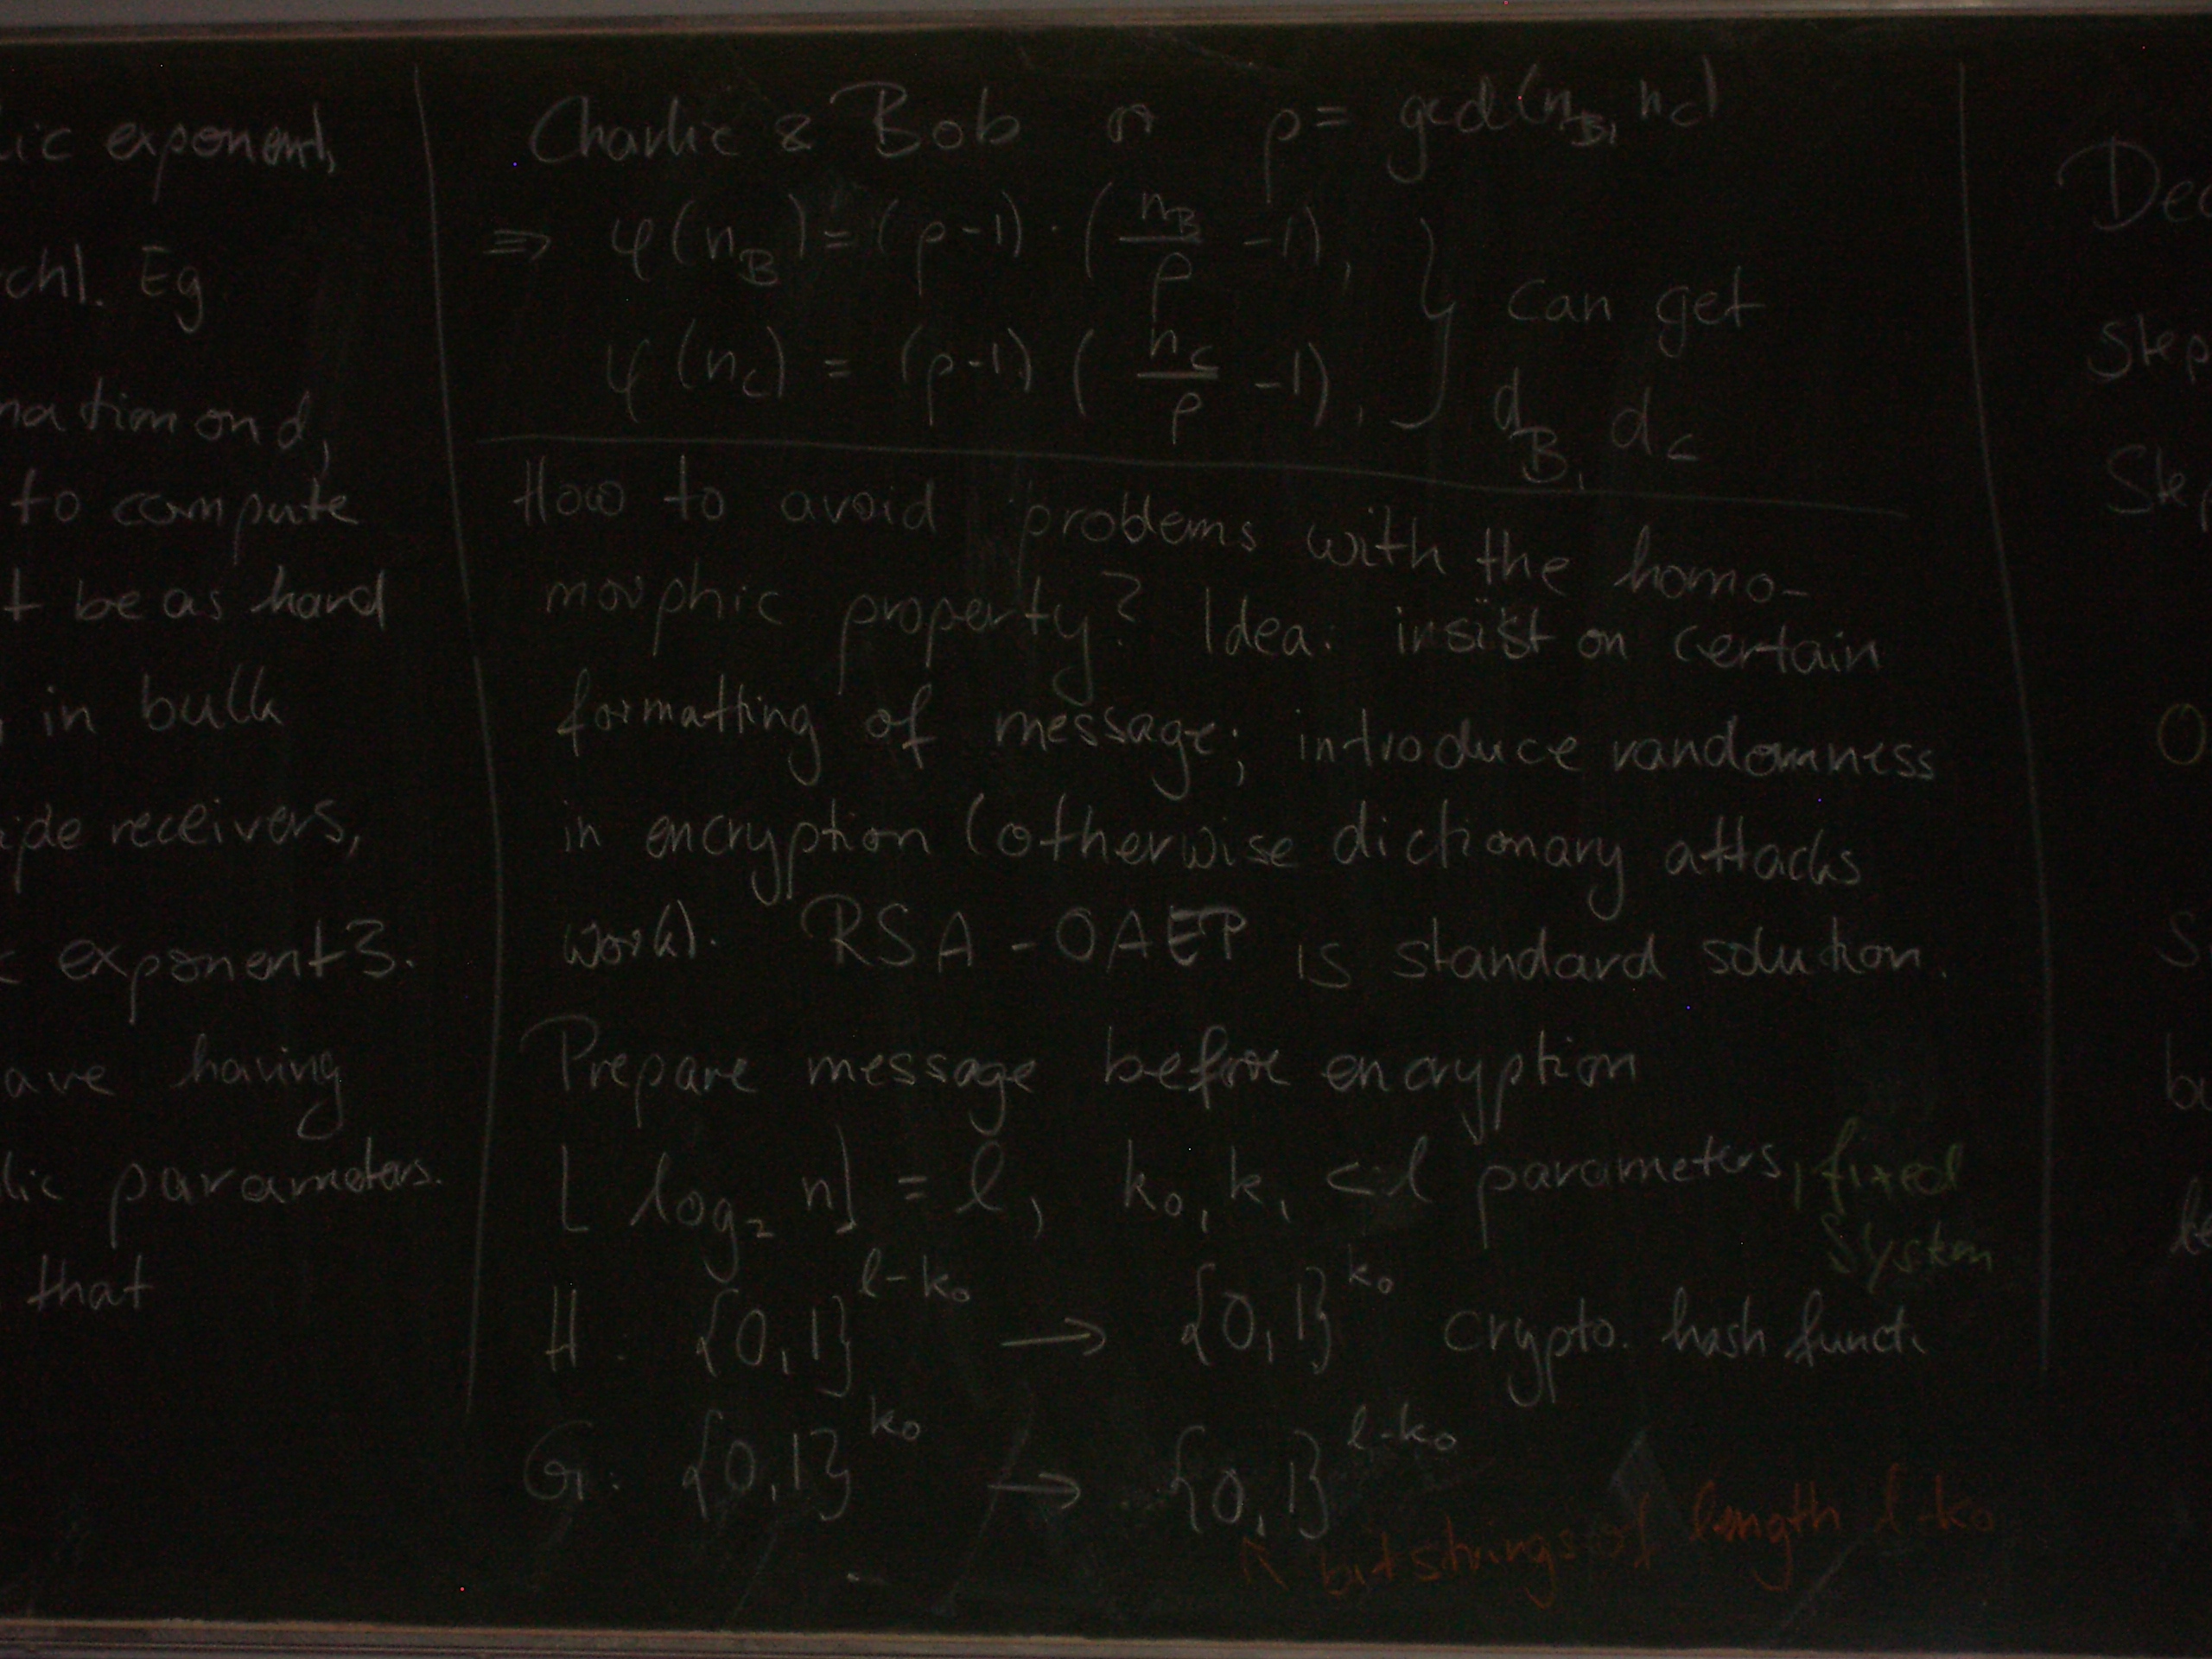 lic exponent,
rch). Eg
mation on d,
to compute
t be as hard
in bulk
ide receivers,
c exponent 3.
ave having
lic parameters.
that
Charlie & Bob ⇝ p = gcd(n_B, n_C)
⇒ φ(n_B) = (p-1) · (n_B/p -1),
φ(n_C) = (p-1) (n_C/p -1),
} can get
d_B, d_C
How to avoid problems with the homo-
morphic property? Idea: insist on certain
formatting of message; introduce randomness
in encryption (otherwise dictionary attacks
work). RSA-OAEP is standard solution.
Prepare message before encryption
⌊log₂ n⌋ = l, k₀, k₁ < l parameters, fixed
system
H: {0,1}^{l-k₀} → {0,1}^{k₀} crypto. hash funct.
G: {0,1}^{k₀} → {0,1}^{l-k₀}
↖ bit strings of length l-k₀
Dec
Step
Step